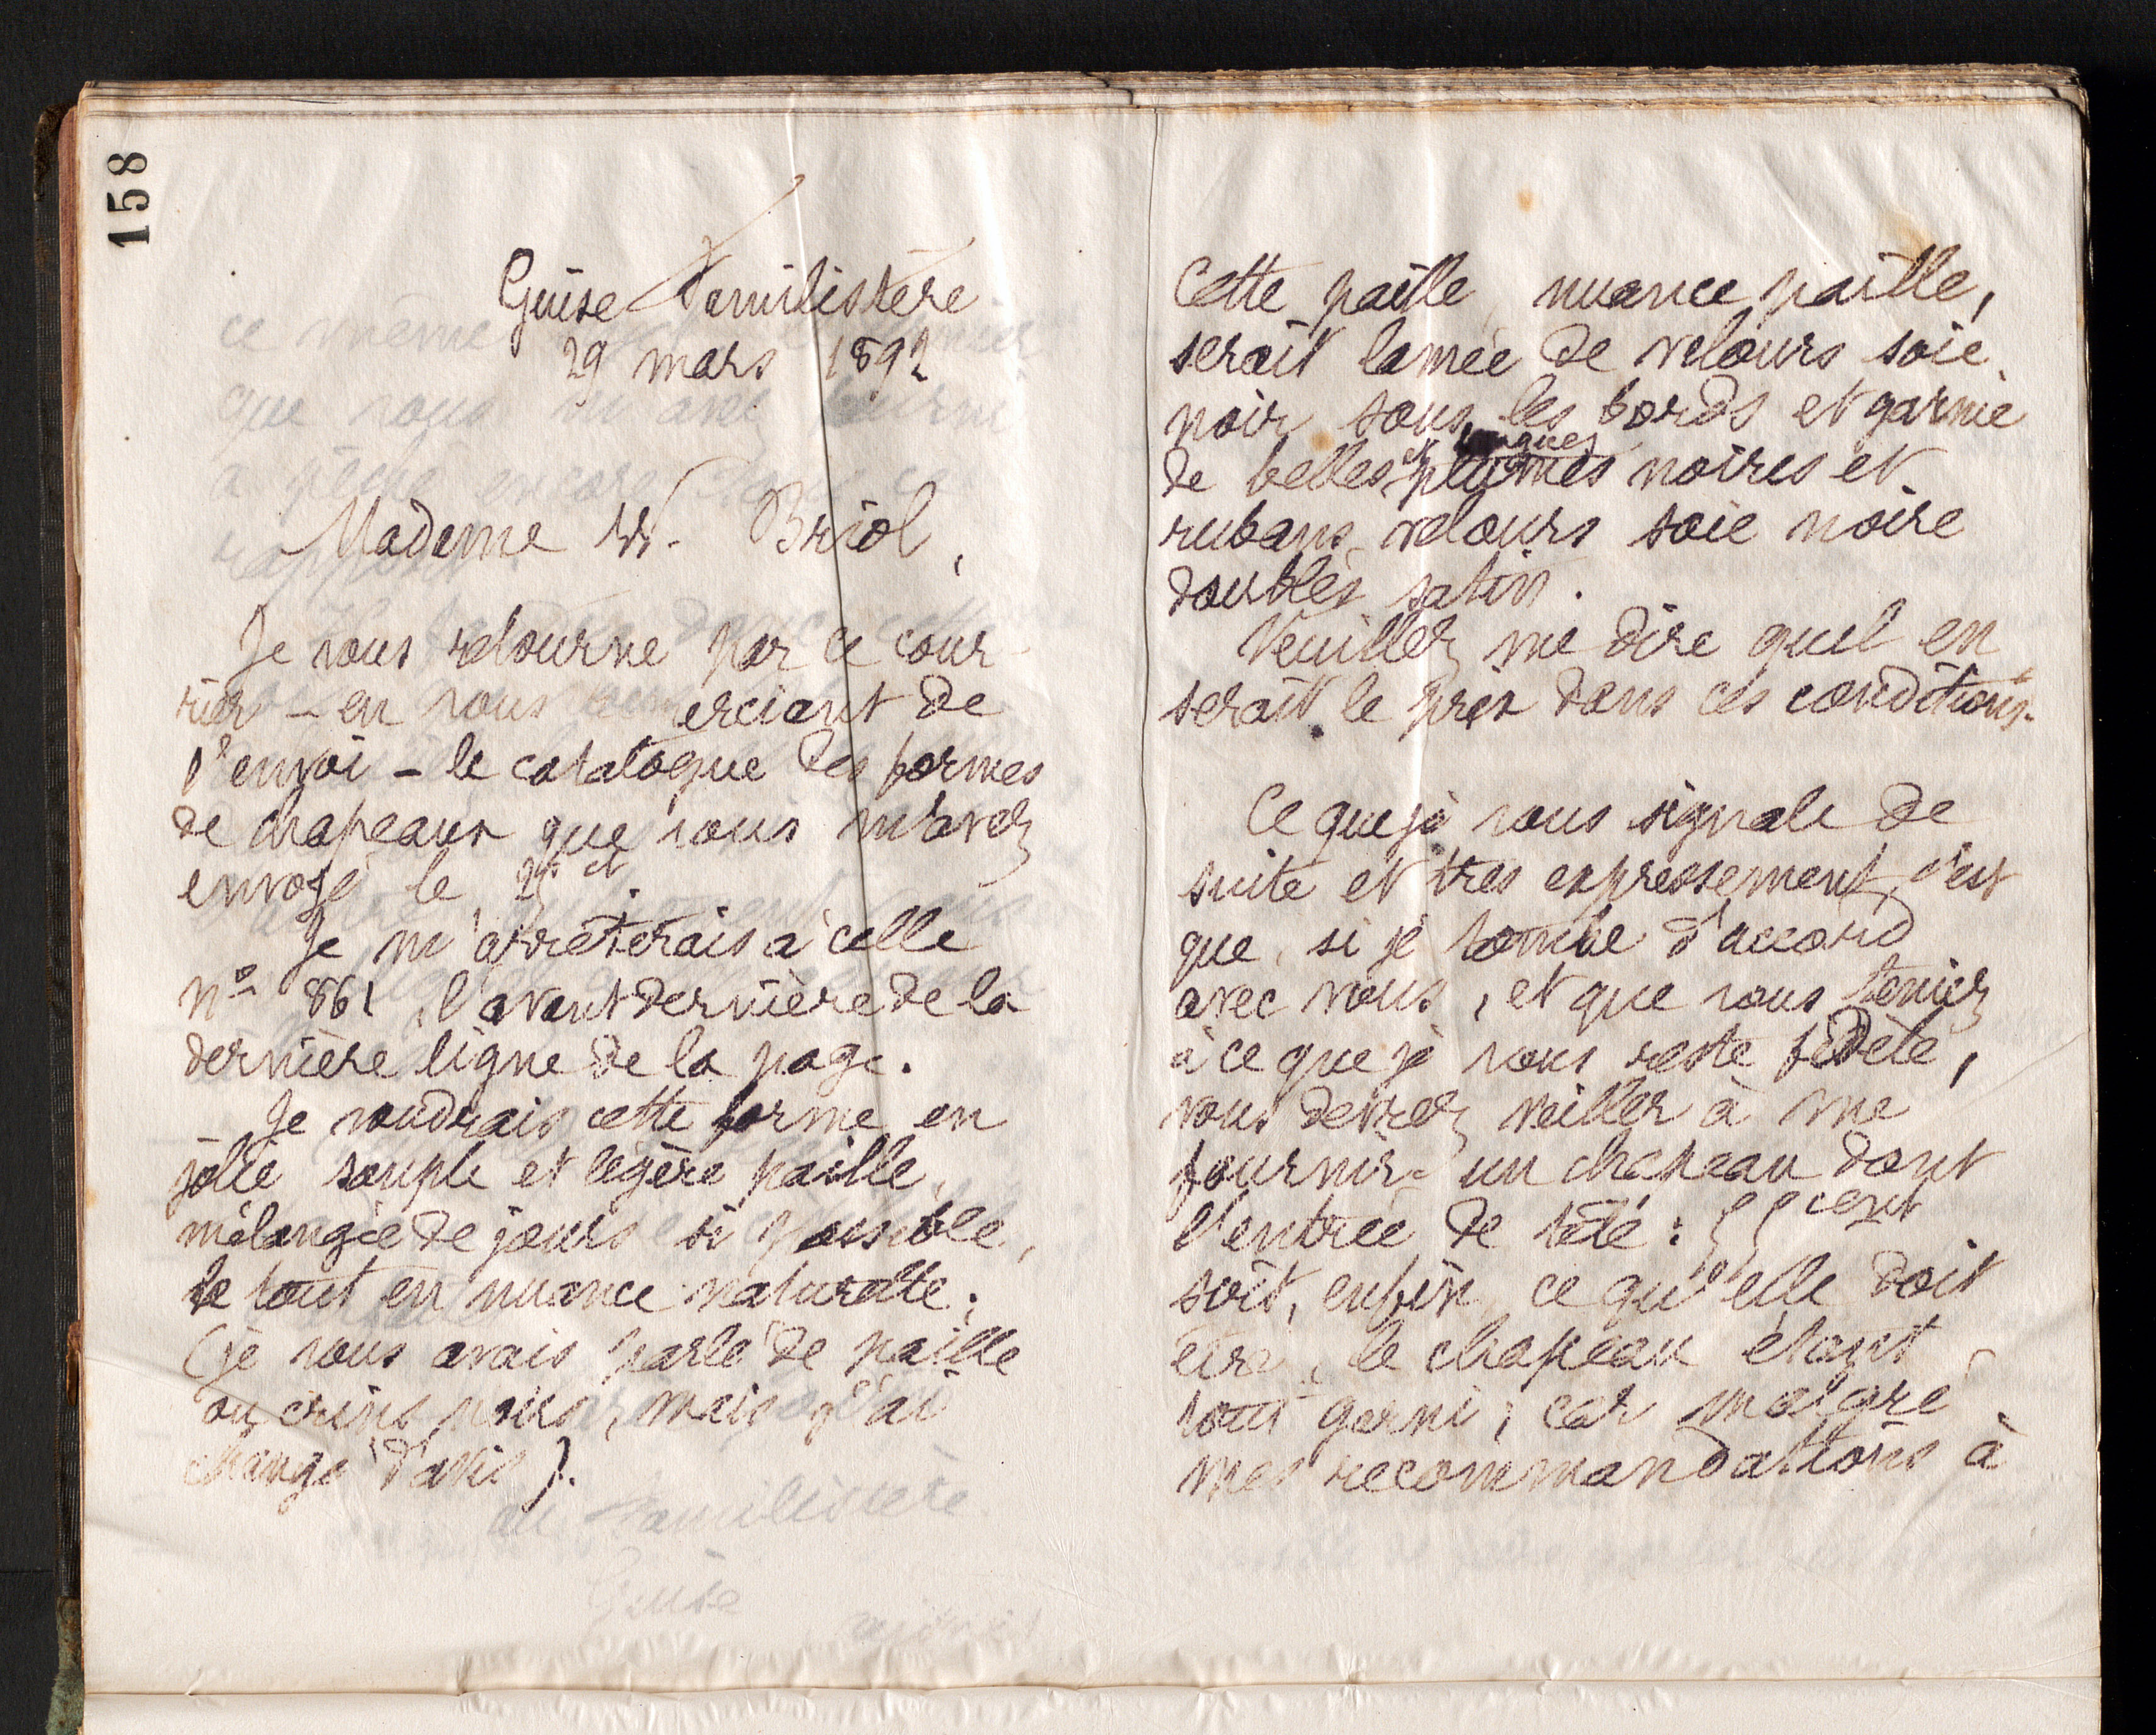 158
Guise Familistère
29 mars 1892
Madame W. Briol,
Je vous retourne par ce cour-
rier - en vous remerciant de
l'envoi - le catalogue des formes
de chapeaux que vous m'avez
envoyé le 25 ct.
Je m'arrêterais à celle
n° 861, l'avant dernière de la
dernière ligne de la page.
Je voudrais cette forme en
jolie souple et légère paille,
mélangée de jours si possible,
le tout en nuance naturelle.
(je vous avais parlé de paille
ou crins noirs, mais j'ai
changé d'avis).
Cette paille, nuance paille,
serait lamée de velours soie
noir sous les bords et garnie
de belles et longues plumes noires et
rubans velours soie noire
doublés satin.
Veuillez me dire quel en
serait le prix dans ces conditions.
Ce que je vous signale de
suite et très expressement, c'est
que, si je tombe d'accord
avec vous, et que vous teniez
à ce que je vous reste fidèle,
vous devrez veiller à me
fournir un chapeau dont
l'entrée de tête: 55 cent
soit, enfin, ce qu'elle doit
être, le chapeau étant
tout garni; car malgré
mes recommandations à